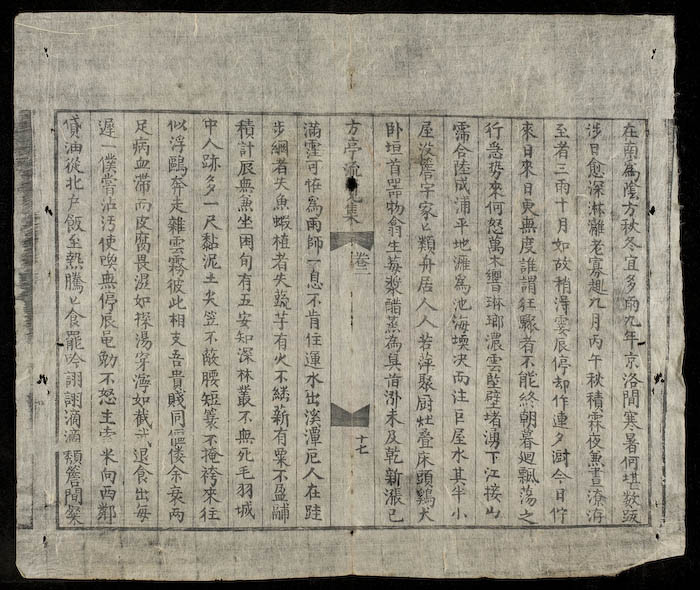 在南為陰方秋冬宜多雨九年京洛間寒暑何堪數跋
涉日愈深淋離老寡趣九月丙午秋積霖夜兼晝潦洊
至者三兩十月如故稍淂霎辰停却作連夕澍今日佇
來日來日更無度誰謂狂驟者不能終朝暮廻飄蕩之
行急勢來何怒萬木響琳瑯濃雲墜壁堵湧下江接山
霈合陸成浦平地濰為池海壖决而注巨屋水其半小
屋沒簷宇家匕類舟居人人若萍聚厨灶疊床頭鷄犬
卧垣首器物翕生莓漿醋蒸為臭昔漲未及乾新漲已
方亭流覽集 卷二 十七
滿霪可怪為雨師一息不肯住運水出溪潭厄人在跬
步網者失魚蝦植者失蔬芋有火不継薪有粟不盈鬴
積計辰無魚坐困旬有五安知深林叢不無死毛羽城
中人跡多一尺黏泥土尖笠不蔽腰短簑不掩袴來往
似浮鷗奔走雜雲霧彼此相支吾貴賤同傴僂余衰兩
足病血滯而皮腐畏濕如探湯穿濘如截戒退食出每
遲一僕嘗沾汚使喚無停辰黽勉不怒主索米向西鄰
貸油從北户飯至熱騰匕食罷吟詡詡滴滴頹簷聞粲